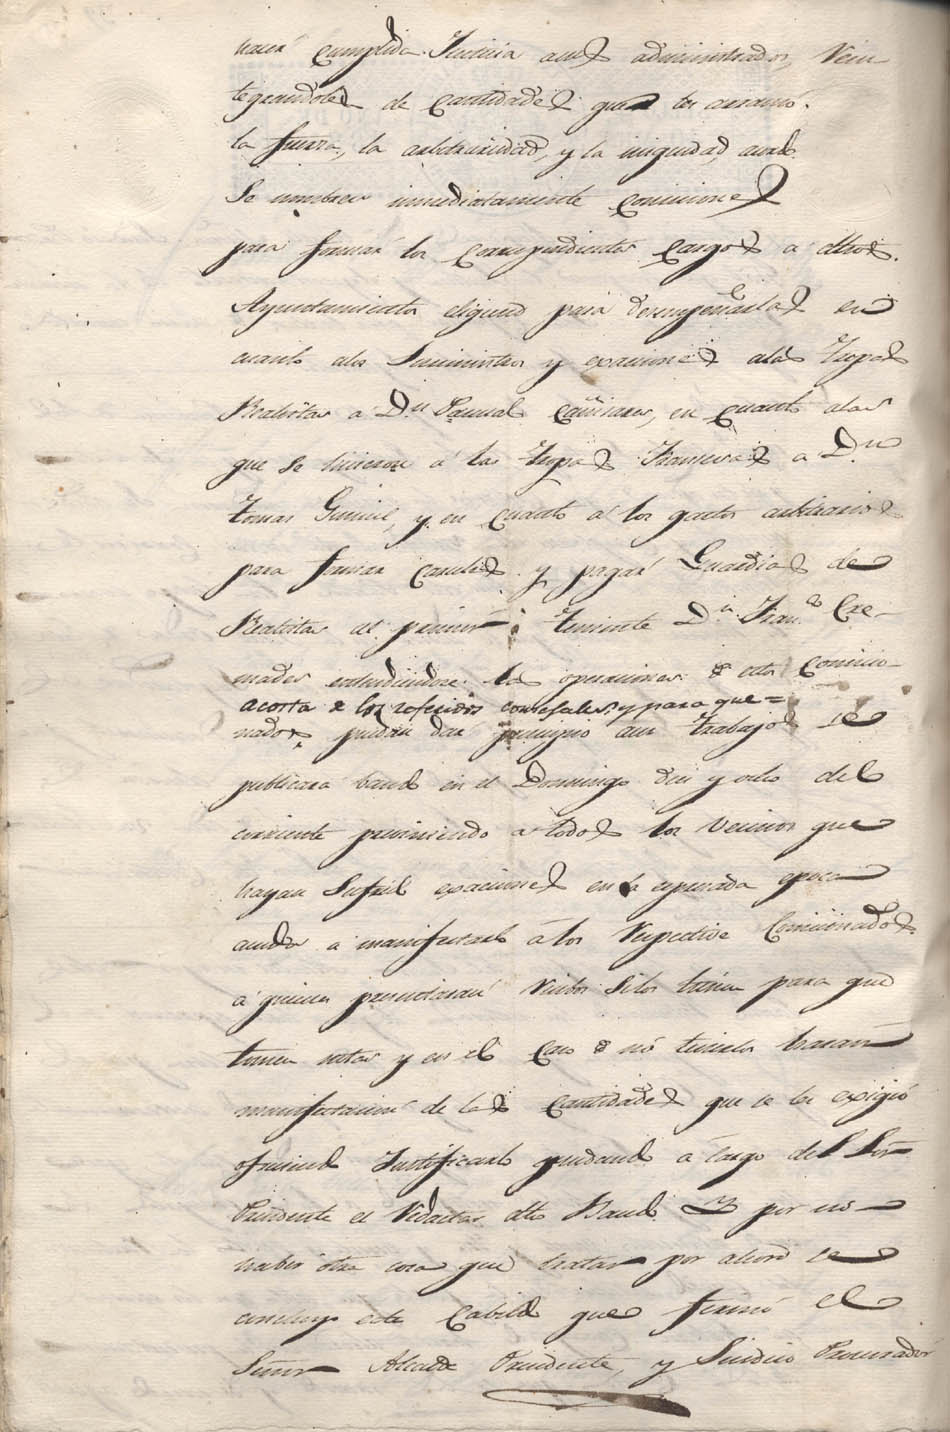 hacer cumplida Justicia a sus administrados, Rein-
tegrandoles de cantidades que les arrancó
la fuerza, la arbitrariedad, y la iniquidad, acordó
Se nombren inmediatamente comiciones
para formar los correspondientes cargos a dhos.
Ayuntamientos eligiend para desempeñarlas en
cuanto alos Suministros y exaciones alas tropas
Realistas a Dn Pascual Cañizares, en cuanto alas
que se hicieron á las tropas Francesas a Dn
Tomas Guinel, y en cuanto á los gastos arbitrarios
para formar canales y pagar Guardias de
Realistas al primer Teniente Dn Franco Cre-
mades entendiendose las operaciones de estos Comicio-
acosta de los referidos concejales, y para que =
nados puedan dar principio a sus trabajos se
publicará bando en el Domingo diez y ocho del
corriente previniendo a todos los vecinos que
hayan Sufrido exaciones en la expresada epoca
acudan a manifestarlo á los Respectivos Comicionados
á quienes presentarán recibos Silos tienen para que
tomen notas y en el caso de nó tenerlos harán
manifestacion de las cantidades que se les exigió
ofreciendo Justificarlo quedando á cargo del Sor
Precidente el redactar dho Bando. Y por no
haber otra cosa que tratar por ahora se
concluyó este Cabildo que firmó el
Señor Alcalde Precidente, y Sindico Procurador